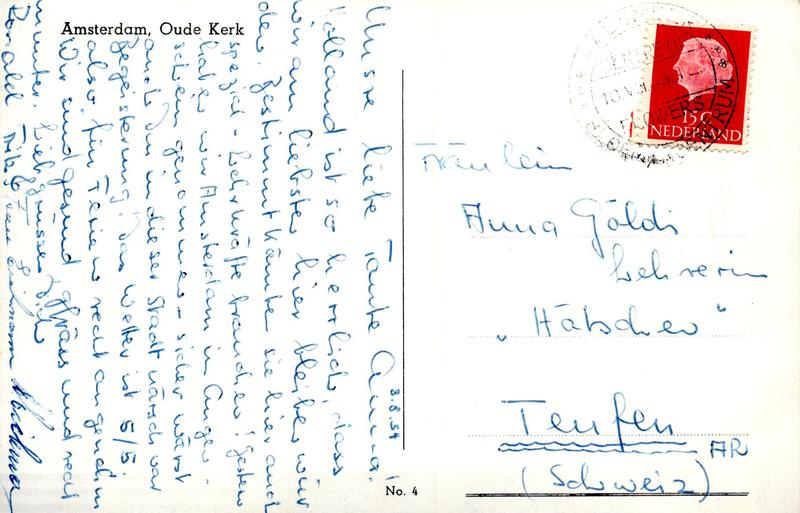 Amsterdam, Oude Kerk
3.8.59
Unsre liebe Tante Anna!
Holland ist so herrlich, dass
wir am liebsten hier bleiben wür
den. Bestimmt könnte sie hier auch
spezial-Lehrkräfte brauchen! Gestern
haben wir Amsterdam in Augen-
schein genommen - sicher wärst
auch Du in dieser Stadt närsch vor
Begeisterung. Das Wetter ist 5/5.
also für Ferien recht angenehm
Wir sind gesund, gfräss und recht
munter. Liebi Grüsse Dich
Donald Fritz
No. 4
15 C
NEDERLAND
FLOWERS
Fräulein
Anna Göldi
Lehrerin
„Hätschen"
Teufen AR
(Schweiz)